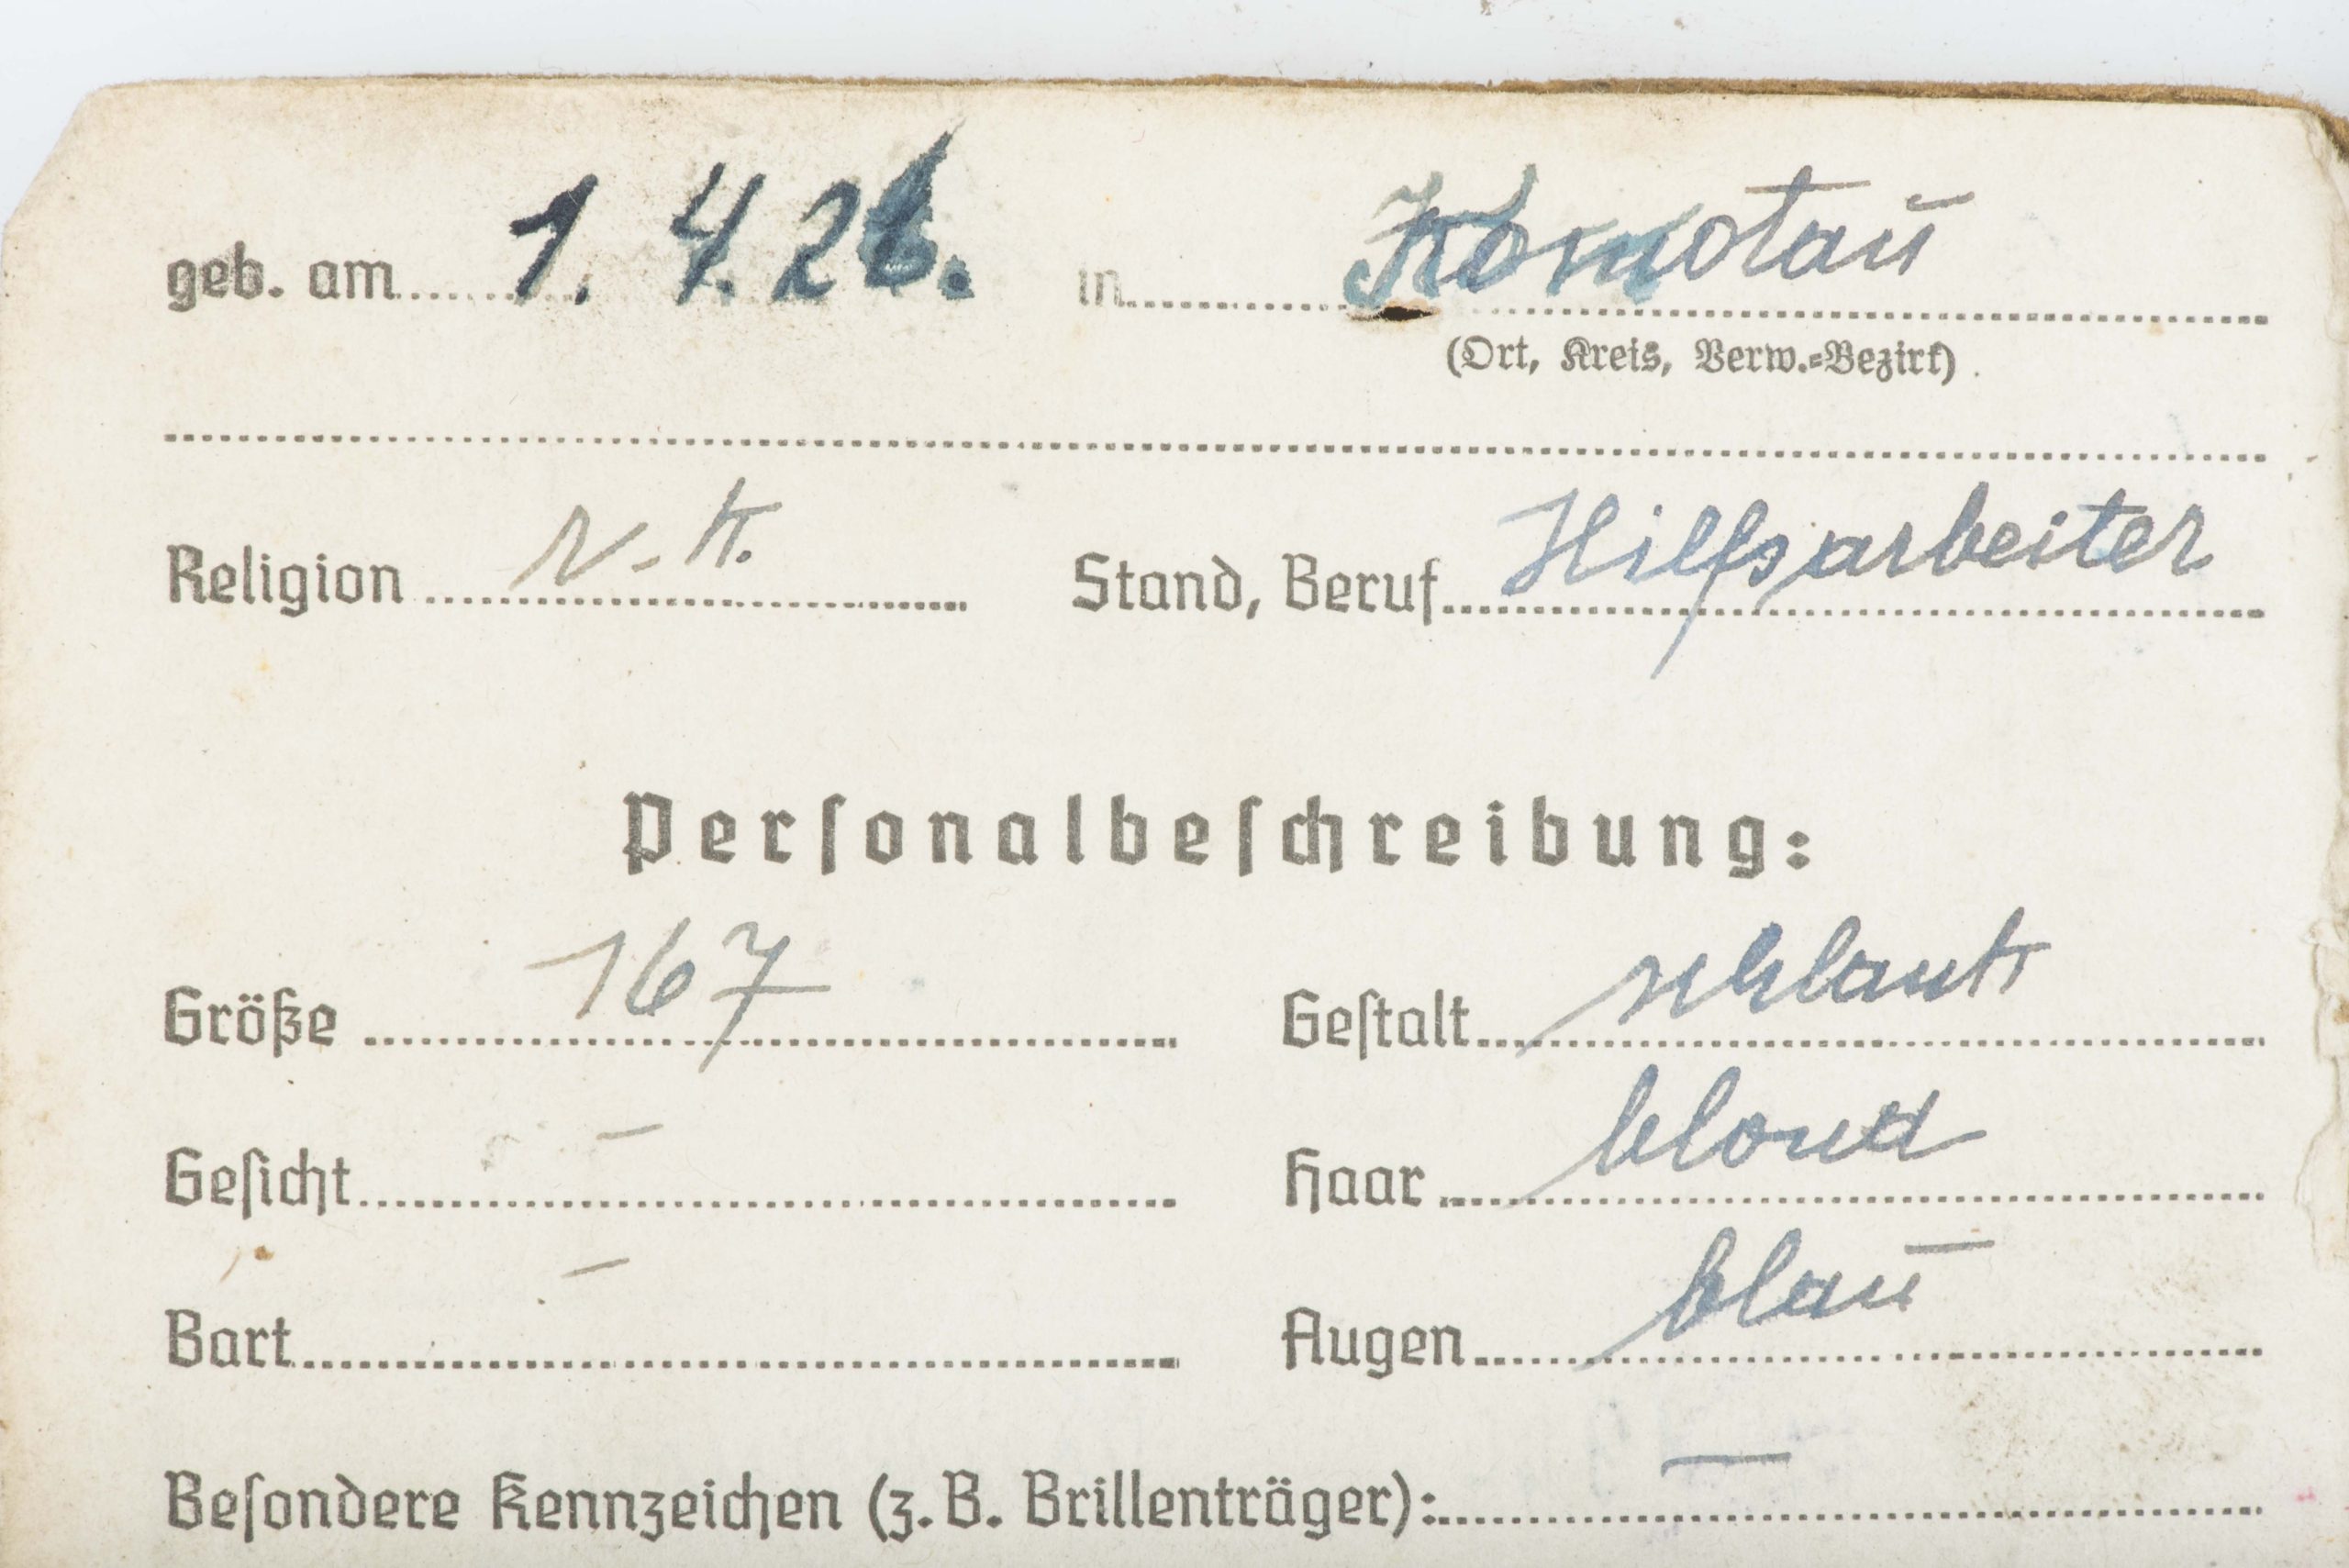 geb. am 1. 4. 26. in Komotau
(Ort, Kreis, Verw.-Bezirk)
Religion r.-k. Stand, Beruf Hilfsarbeiter
Personalbeschreibung:
Größe 167 Gestalt schlank
Gesicht – Haar blond
Bart – Augen blau
Besondere Kennzeichen (z. B. Brillenträger): –